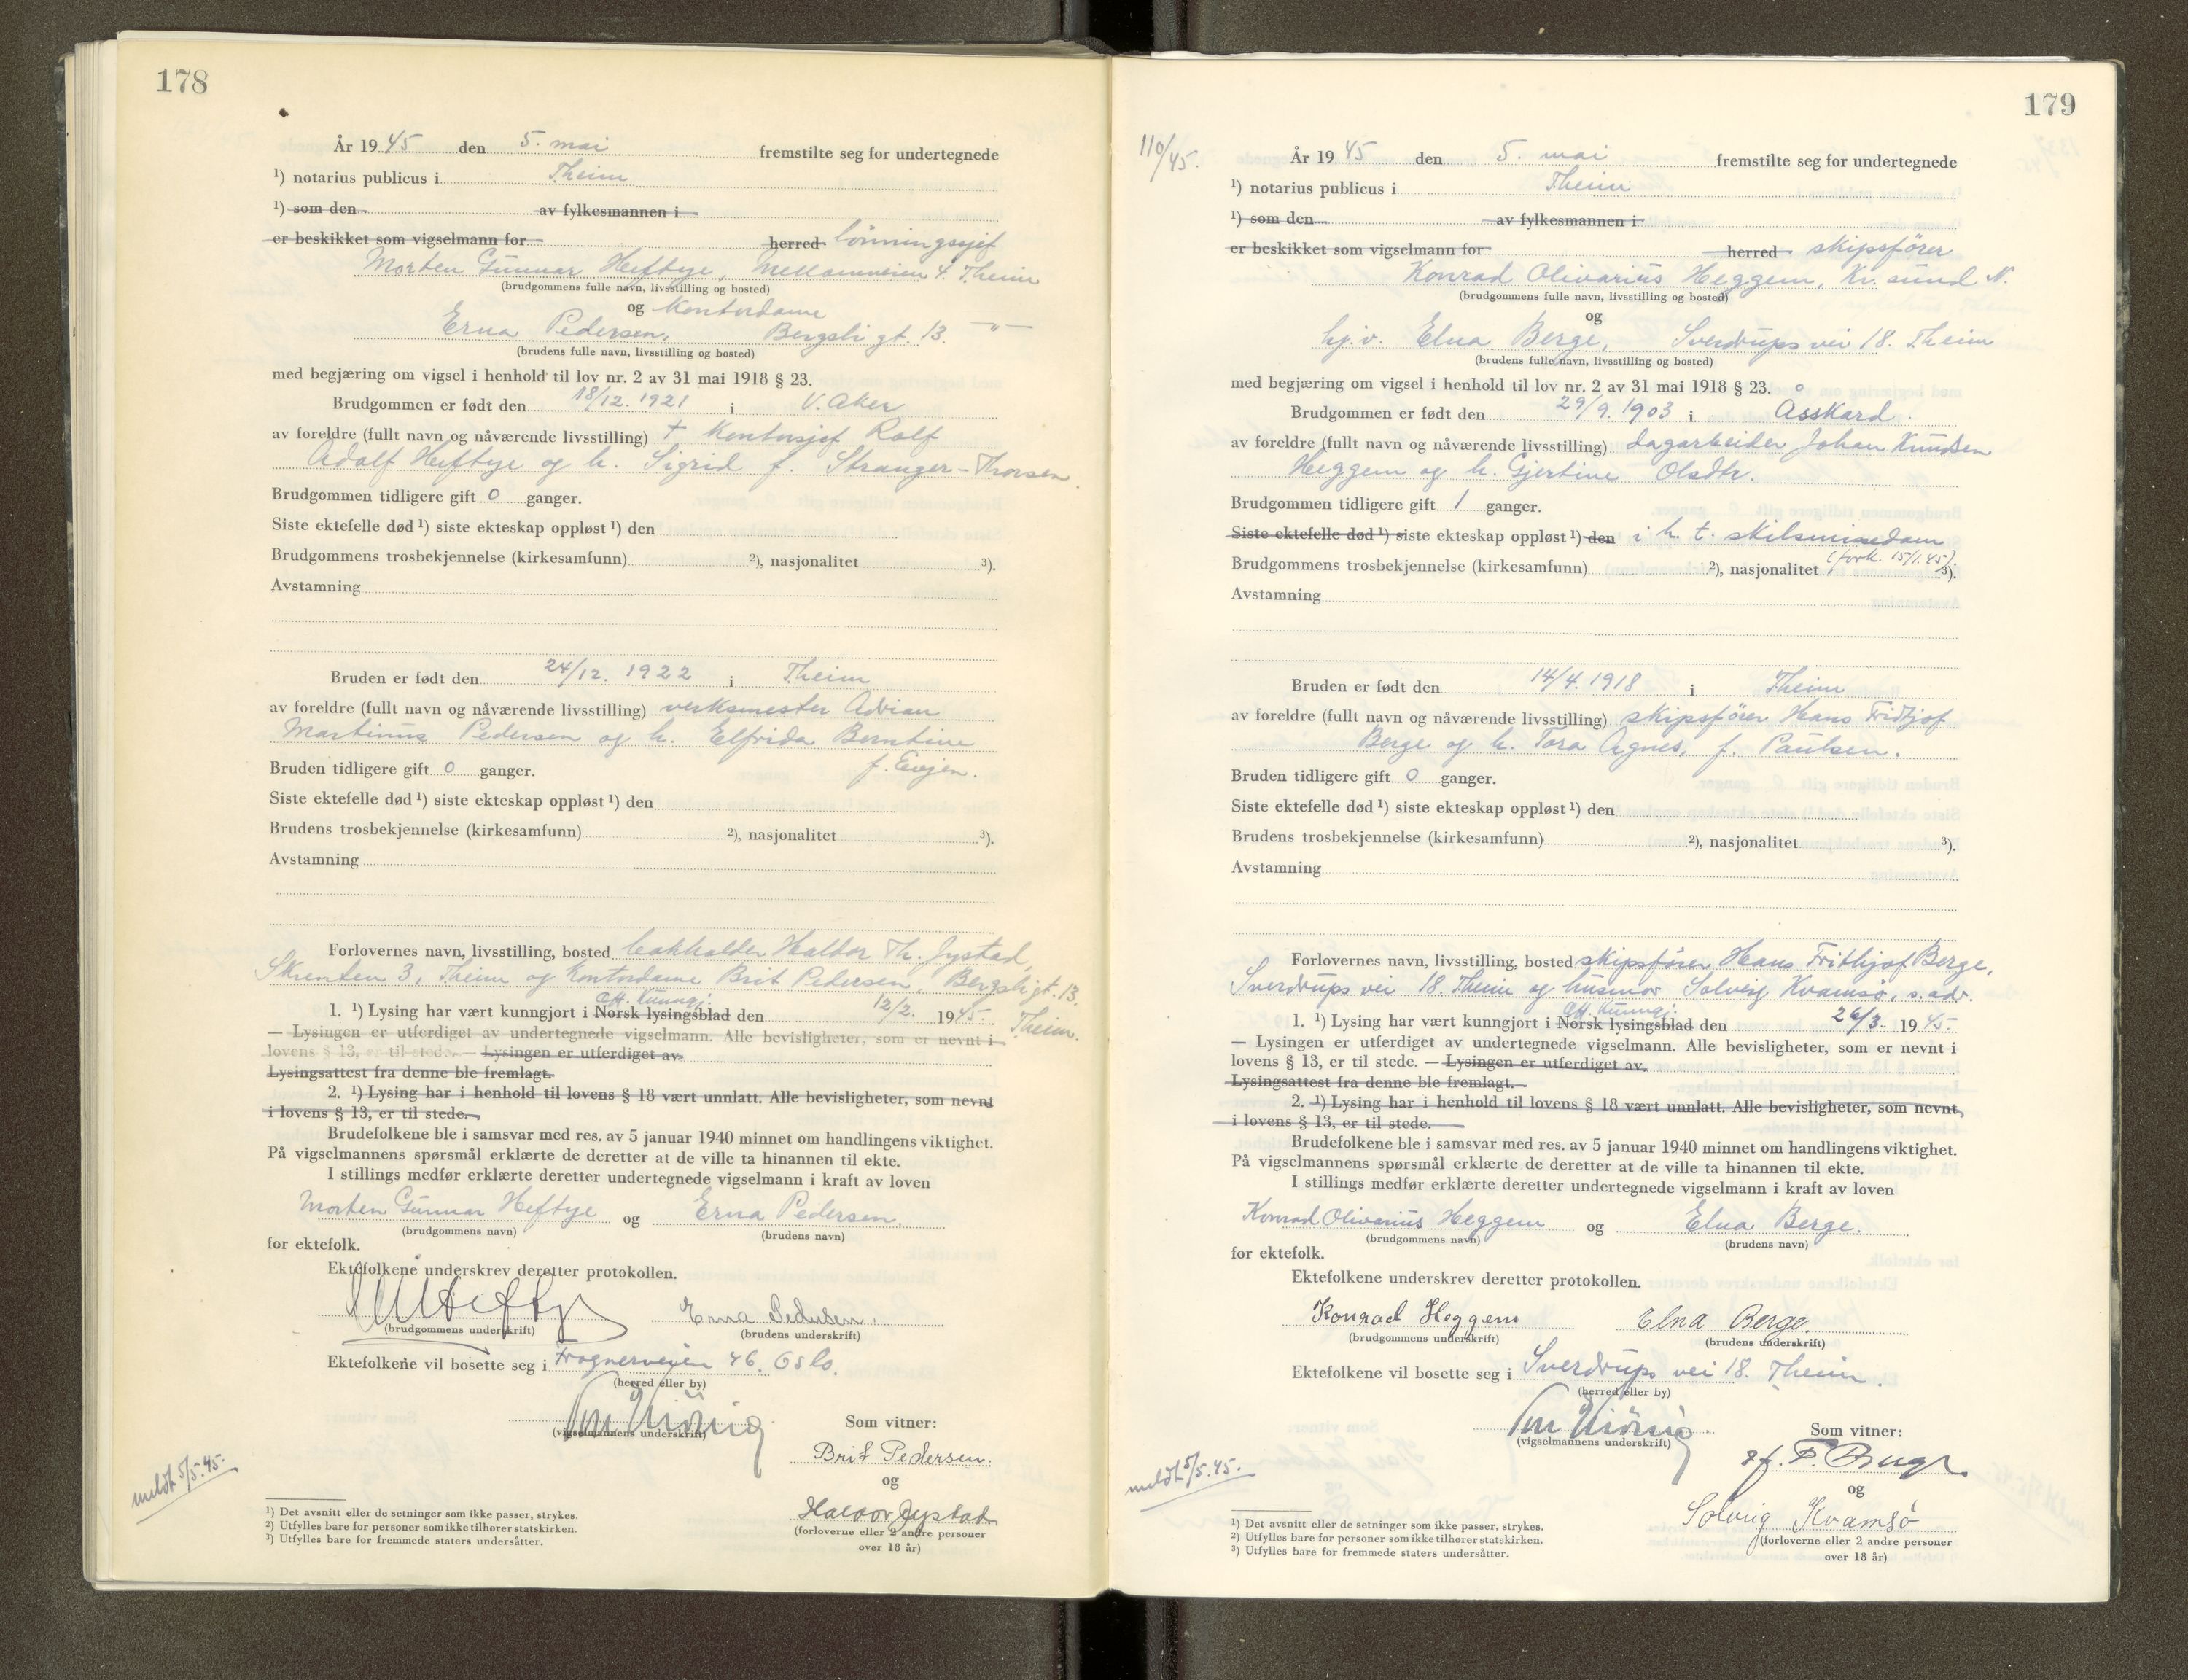 178
År 1945 den 5. mai fremstilte seg for undertegnede
1) notarius publicus i Theim
1) som den av fylkesmannen i
er beskikket som vigselmann for herred lönningssjef
Morten Gunnar Heftye, Mellomveien 4. Theim
(brudgommens fulle navn, livsstilling og bosted)
og kontordame
Erna Pedersen, Bergsligt. 13. —"—
(brudens fulle navn, livsstilling og bosted)
med begjæring om vigsel i henhold til lov nr. 2 av 31 mai 1918 § 23.
Brudgommen er født den 18/12. 1921 i V. Aker
av foreldre (fullt navn og nåværende livsstilling) + Kontorsjef Rolf
Adolf Heftye og h. Sigrid f. Stranger-Thorsen.
Brudgommen tidligere gift 0 ganger.
Siste ektefelle død 1) siste ekteskap oppløst 1) den
Brudgommens trosbekjennelse (kirkesamfunn) 2), nasjonalitet 3).
Avstamning
Bruden er født den 24/12. 1922 i Theim
av foreldre (fullt navn og nåværende livsstilling) verksmester Adrian
Martinus Pedersen og h. Elfrida Berntine
Bruden tidligere gift 0 ganger. f. Eiejen.
Siste ektefelle død 1) siste ekteskap oppløst 1) den
Brudens trosbekjennelse (kirkesamfunn) 2), nasjonalitet 3).
Avstamning
Forlovernes navn, livsstilling, bosted bokholder Haldor Th. Jystad,
Skrenten 3, Theim og kontordame Brit Pedersen, Bergsligt. 13.
Off. kunngj.
1. 1) Lysing har vært kunngjort i Norsk lysingsblad den 12/2. 1945. Theim.
— Lysingen er utferdiget av undertegnede vigselmann. Alle bevisligheter, som er nevnt i
lovens § 13, er til stede. — Lysingen er utferdiget av
Lysingsattest fra denne ble fremlagt.
2. 1) Lysing har i henhold til lovens § 18 vært unnlatt. Alle bevisligheter, som nevnt
i lovens § 13, er til stede.
Brudefolkene ble i samsvar med res. av 5 januar 1940 minnet om handlingens viktighet.
På vigselmannens spørsmål erklærte de deretter at de ville ta hinannen til ekte.
I stillings medfør erklærte deretter undertegnede vigselmann i kraft av loven
Morten Gunnar Heftye og Erna Pedersen.
(brudgommens navn) (brudens navn)
for ektefolk.
Ektefolkene underskrev deretter protokollen.
MHeftye Erna Pedersen.
(brudgommens underskrift) (brudens underskrift)
Ektefolkene vil bosette seg i Frognerveien 46. Oslo.
(herred eller by)
(vigselmannens underskrift)
Som vitner:
Brit Pedersen.
og
Haldor Jystad
(forloverne eller 2 andre personer
over 18 år)
meldt 5/5.45.
1) Det avsnitt eller de setninger som ikke passer, strykes.
2) Utfylles bare for personer som ikke tilhører statskirken.
3) Utfylles bare for fremmede staters undersåtter.
179
110/45.
År 1945 den 5. mai fremstilte seg for undertegnede
1) notarius publicus i Theim
1) som den av fylkesmannen i
er beskikket som vigselmann for herred skipsförer
Konrad Olivarius Heggem, Kr. sund N.
(brudgommens fulle navn, livsstilling og bosted)
og
hj.v. Elna Berge, Sverdrups vei 18. Theim
(brudens fulle navn, livsstilling og bosted)
med begjæring om vigsel i henhold til lov nr. 2 av 31 mai 1918 § 23.
Brudgommen er født den 29/9. 1903 i Åsskard.
av foreldre (fullt navn og nåværende livsstilling) dagarbeider Johan Knudsen
Heggem og h. Gjertine Olsdtr.
Brudgommen tidligere gift 1 ganger.
Siste ektefelle død 1) siste ekteskap oppløst 1) den i h. t. skilsmissedom
(fork. 15/1.45).
Brudgommens trosbekjennelse (kirkesamfunn) 2), nasjonalitet 3).
Avstamning
Bruden er født den 14/4. 1918 i Theim
av foreldre (fullt navn og nåværende livsstilling) skipsförer Hans Fridtjof
Berge og h. Tora Agnes, f. Paulsen.
Bruden tidligere gift 0 ganger.
Siste ektefelle død 1) siste ekteskap oppløst 1) den
Brudens trosbekjennelse (kirkesamfunn) 2), nasjonalitet 3).
Avstamning
Forlovernes navn, livsstilling, bosted skipsförer Hans Frithjof Berge,
Sverdrups vei 18. Theim og husmor Solveig Kvamsö, s. adr.
Off. kunngj.
1. 1) Lysing har vært kunngjort i Norsk lysingsblad den 26/3. 1945.
— Lysingen er utferdiget av undertegnede vigselmann. Alle bevisligheter, som er nevnt i
lovens § 13, er til stede. — Lysingen er utferdiget av
Lysingsattest fra denne ble fremlagt.
2. 1) Lysing har i henhold til lovens § 18 vært unnlatt. Alle bevisligheter, som nevnt,
i lovens § 13, er til stede.
Brudefolkene ble i samsvar med res. av 5 januar 1940 minnet om handlingens viktighet.
På vigselmannens spørsmål erklærte de deretter at de ville ta hinannen til ekte.
I stillings medfør erklærte deretter undertegnede vigselmann i kraft av loven
Konrad Olivarius Heggem og Elna Berge.
(brudgommens navn) (brudens navn)
for ektefolk.
Ektefolkene underskrev deretter protokollen.
Konrad Heggem Elna Berge.
(brudgommens underskrift) (brudens underskrift)
Ektefolkene vil bosette seg i Sverdrups vei 18. Theim.
(herred eller by)
(vigselmannens underskrift)
Som vitner:
og
Solveig Kvamsö
(forloverne eller 2 andre personer
over 18 år)
meldt 5/5.45.
1) Det avsnitt eller de setninger som ikke passer, strykes.
2) Utfylles bare for personer som ikke tilhører statskirken.
3) Utfylles bare for fremmede staters undersåtter.